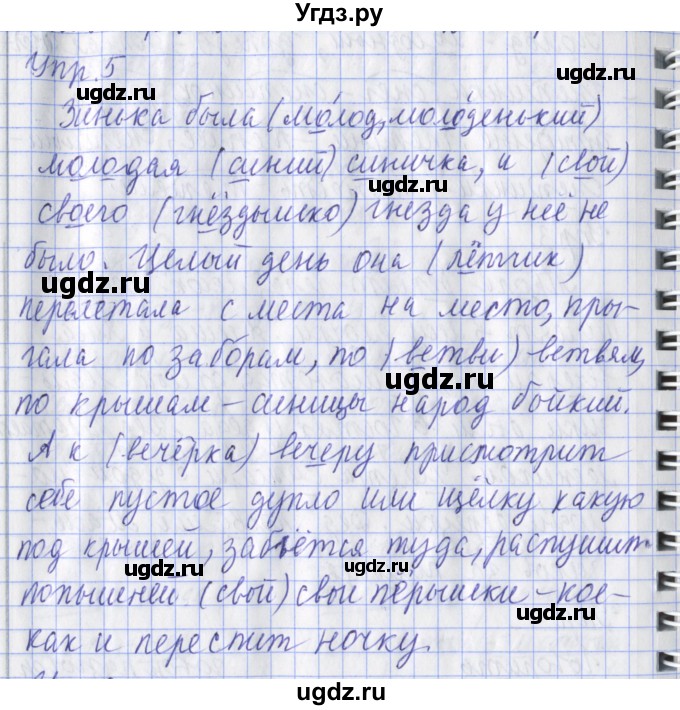 Угдз.ру
Упр. 5
ugdz.ru ugdz.ru
Зинька была (мо́лод, моло́денький)
молодая (синий) синичка, и (свой)
ugdz.ru
своего (гнёздышко) гнезда у неё не
было. Целый день она (лётчик)
ugdz.ru ugdz.ru
перелетала с места на место, пры-
гала по заборам, по (ветви) ветвям,
ugdz.ru
по крышам – синицы народ бойкий.
А к (вечёрка) вечеру присмотрит
ugdz.ru
себе пустое дупло или щёлку какую
под крышей, забьётся туда, распушит
ugdz.ru ugdz.ru
попышней (свой) свои пёрышки – кое-
ugdz.ru
как и переспит ночку.
ugdz.ru